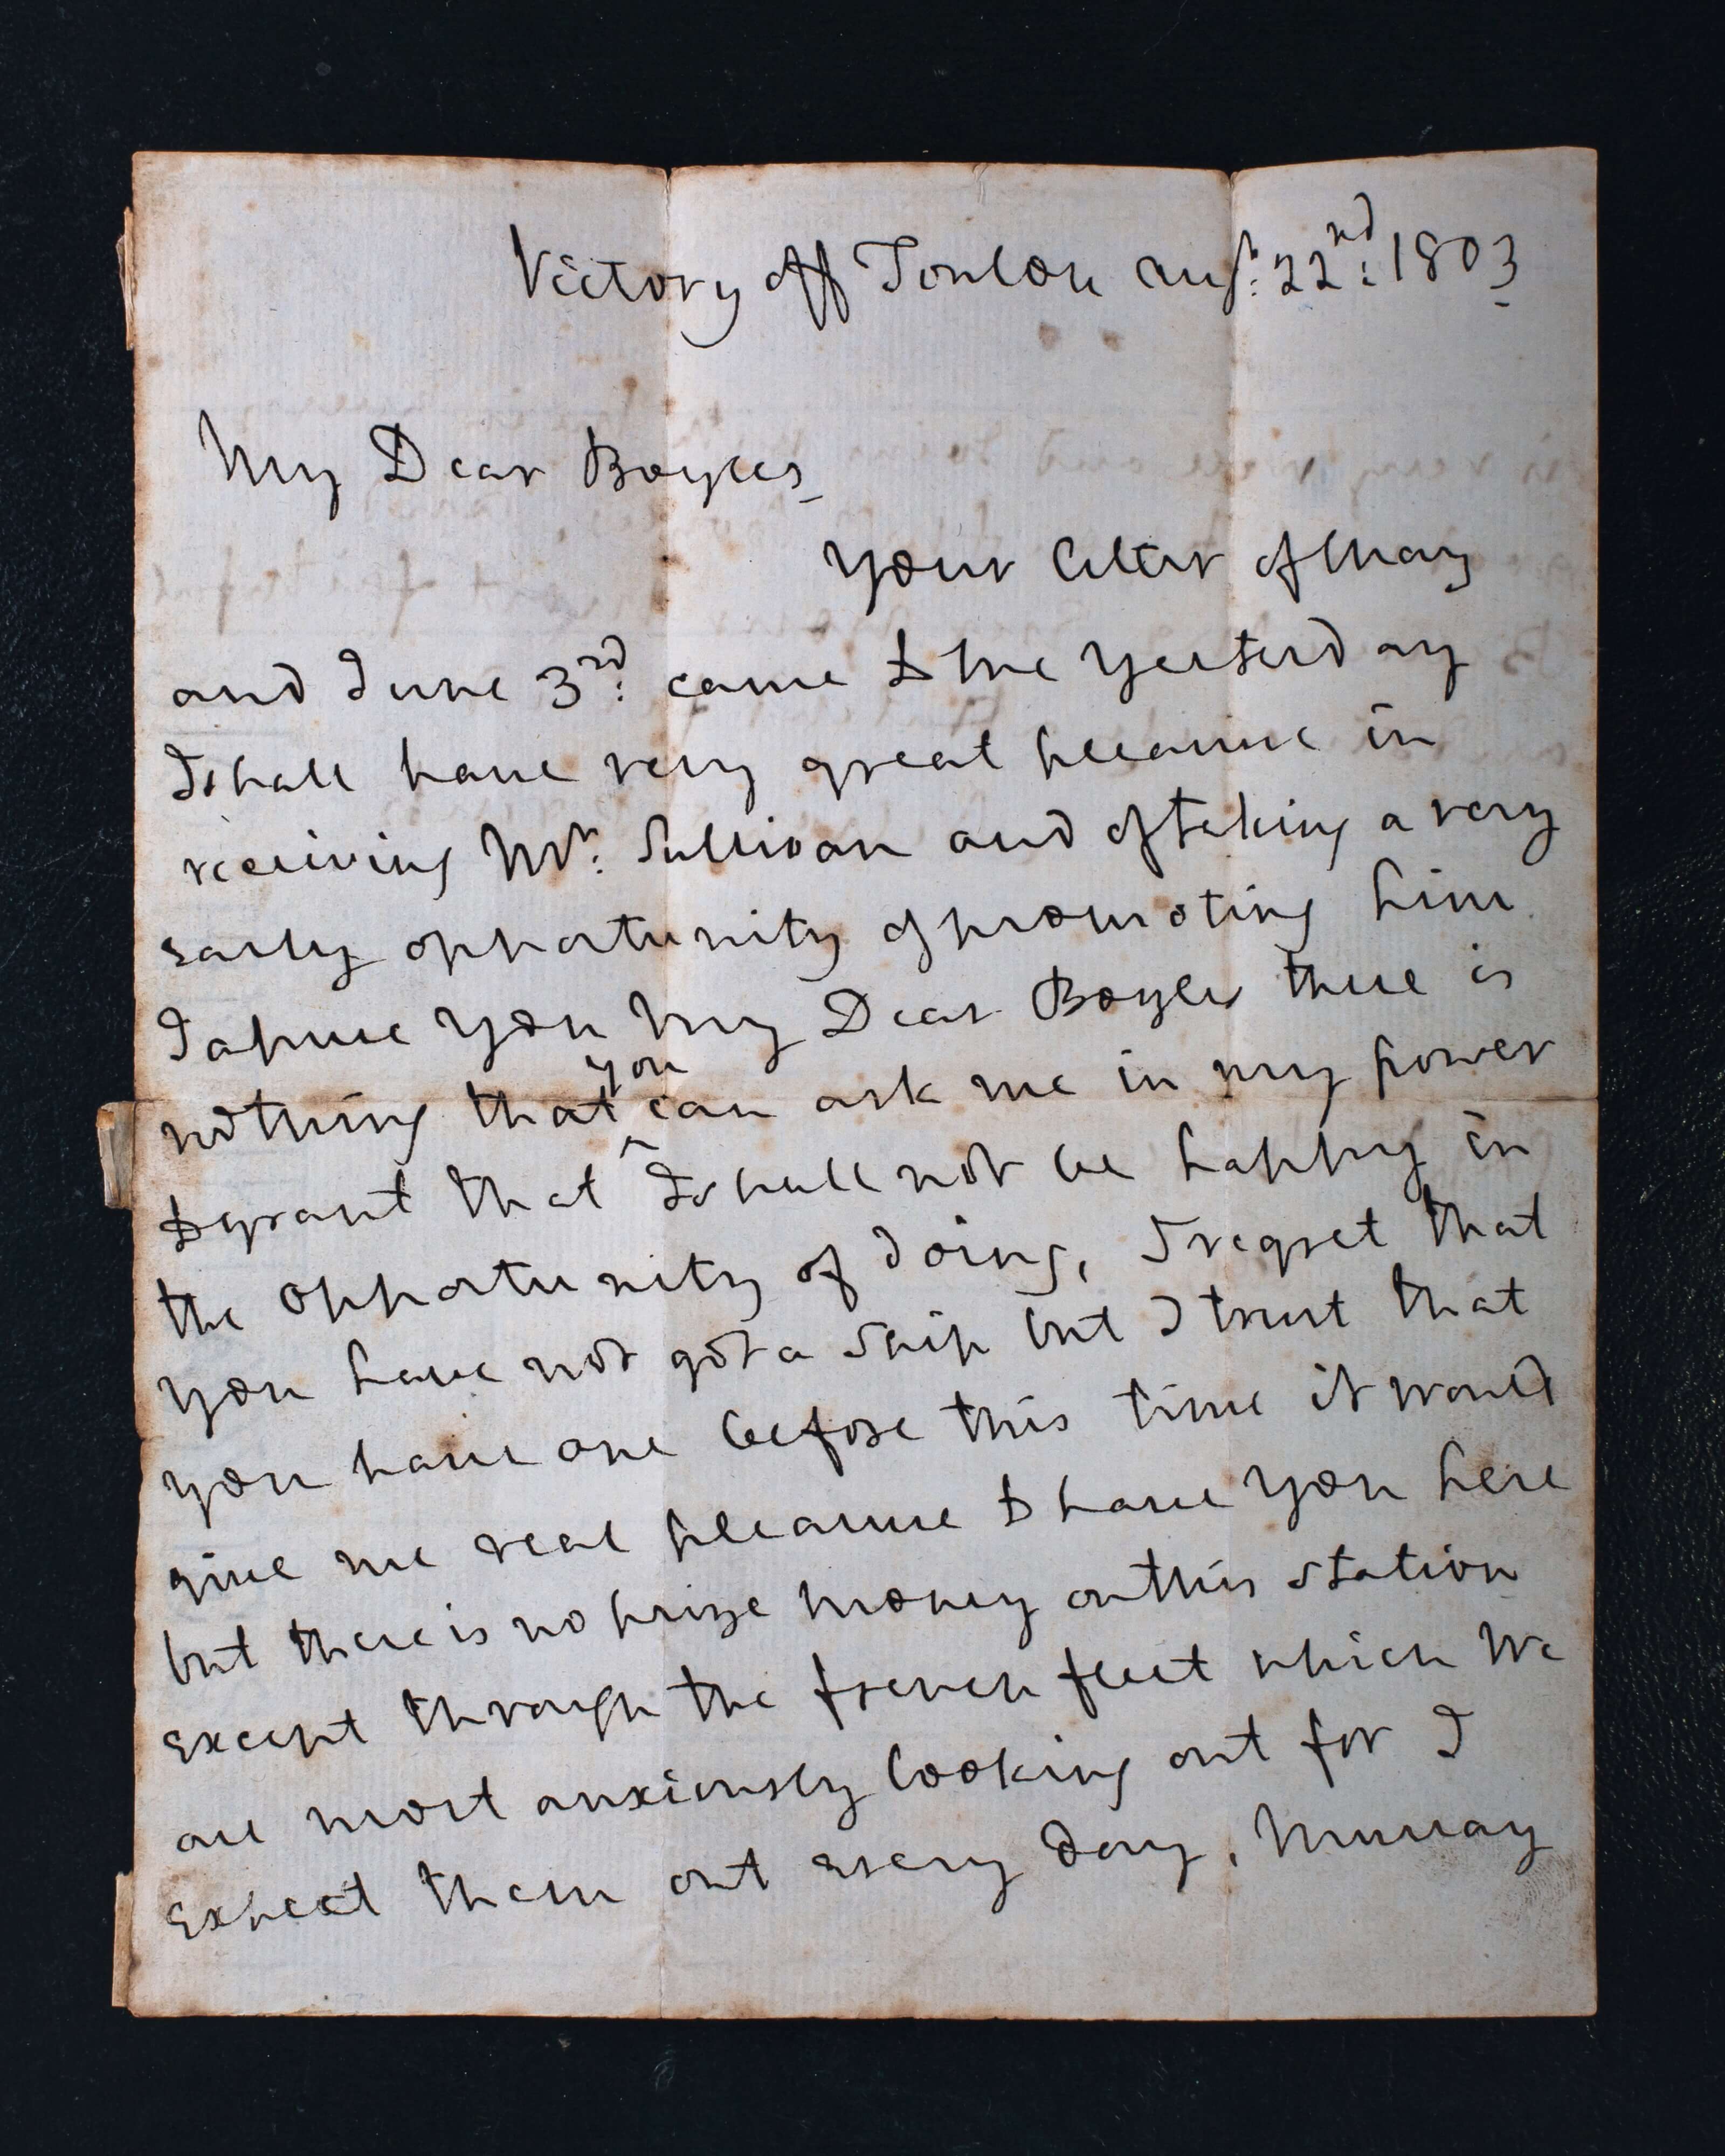 Victory off Toulon Augt: 22nd: 1803
My Dear Boyles,
Your letter of May
and June 3rd: came to me yesterday
I shall have very great pleasure in
receiving Mr: Sullivan and of taking a very
early opportunity of promoting him
I assure you My Dear Boyles there is
you
nothing that ^ can ask me in my power
to grant that I shall not be happy in
the opportunity of doing, I regret that
you have not got a Ship but I trust that
you have one before this time it would
give me real pleasure to have you here
but there is no prize money on this station
except through the french fleet which We
are most anxiously looking out for I
expect them out every day, Murray